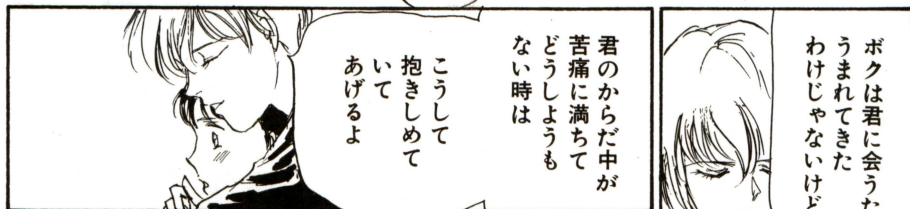 ボクは君に会うた
うまれてきた
わけじゃないけど
君のからだ中が
苦痛に満ちて
どうしようも
ない時は
こうして
抱きしめて
いて
あげるよ